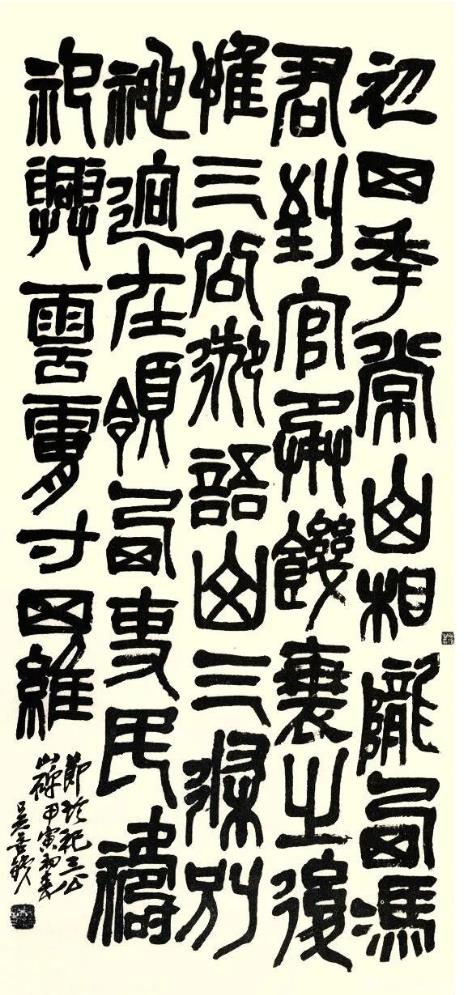 初四年常山相隴西馮
君到官承饑衰之後
惟三公御語山三條別
神迥在領西吏民禱
祀興雲膚寸四維
節臨祀三公
山碑甲寅初春
吳昌碩